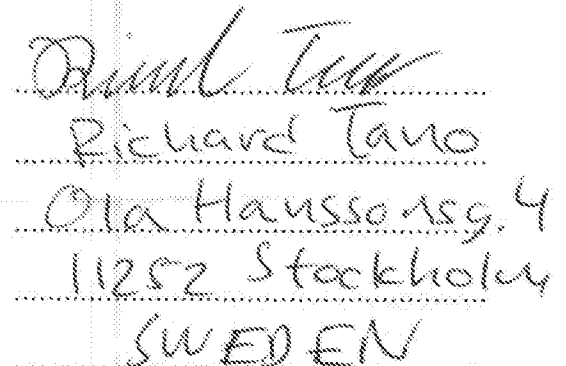 Richard Tano
Ola Hanssonsg. 4
11252 Stockholm
SWEDEN